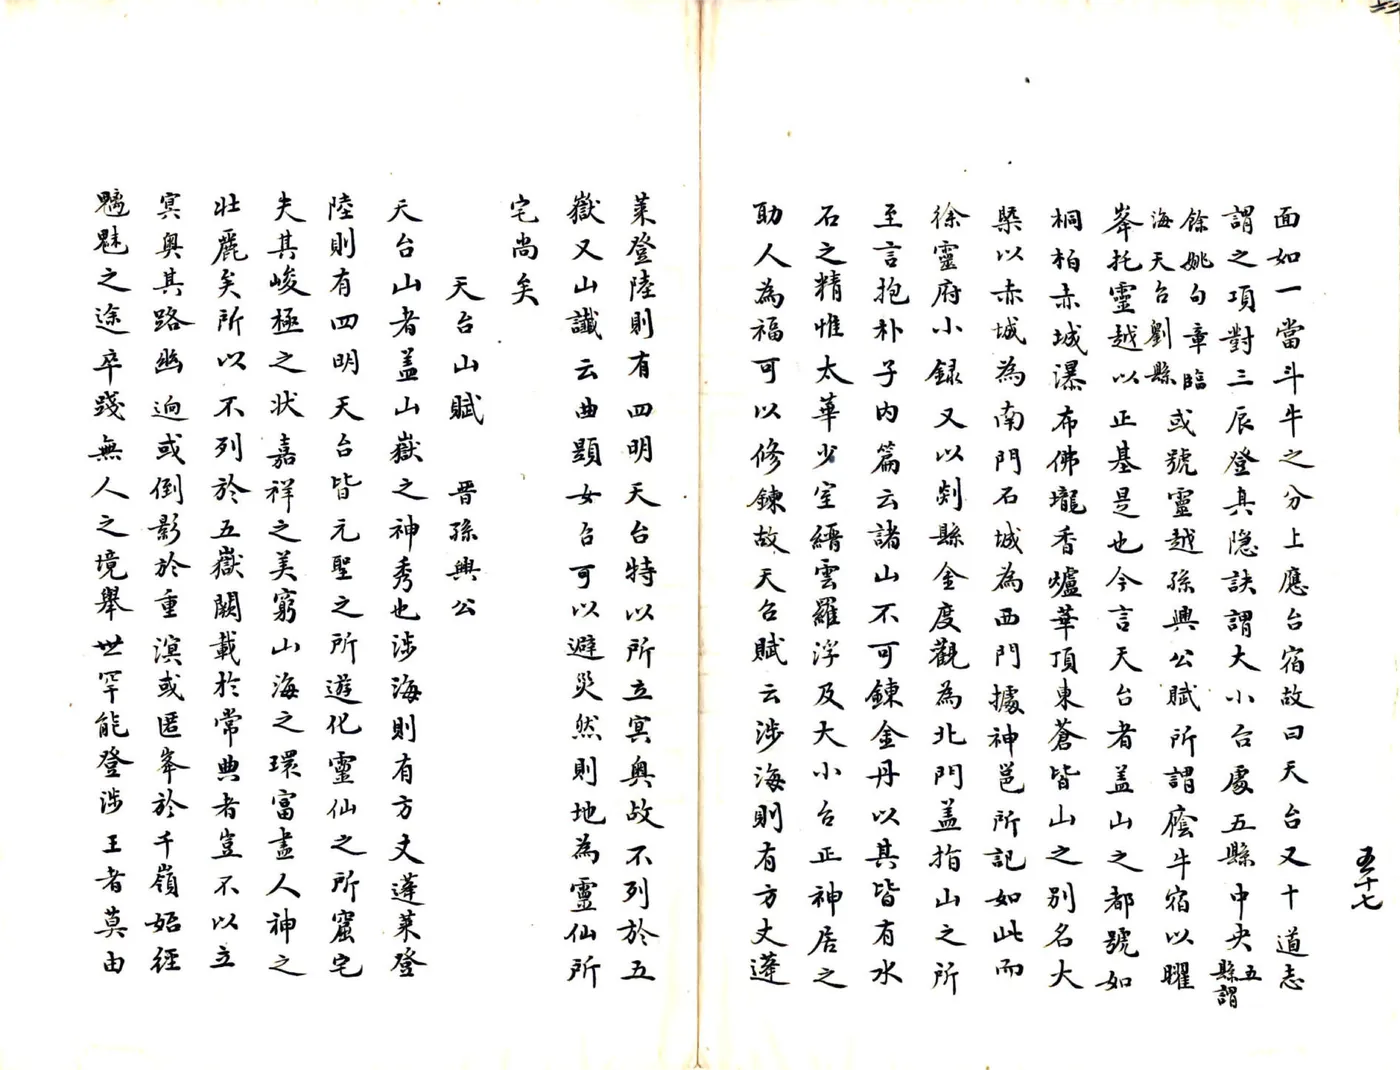 五十七
面如一當斗牛之分上應台宿故曰天台又十道志
謂之項對三辰登真隐訣謂大小台處五縣中央五縣謂
餘姚句章臨海天台剡縣或號靈越孫興公賦所謂蔭牛宿以曜
峯托靈越以正基是也今言天台者盖山之都號如
桐柏赤城瀑布佛壠香爐華頂東蒼皆山之别名大
槩以赤城為南門石城為西門據神邕所記如此而
徐靈府小録又以剡縣金庭觀為北門盖指山之所
至言抱朴子内篇云諸山不可鍊金丹以其皆有水
石之精惟太華少室縉雲羅浮及大小台正神居之
助人為福可以修鍊故天台賦云涉海則有方丈蓬
萊登陸則有四明天台特以所立冥奥故不列於五
嶽又山讖云曲題女台可以避災然則地為靈仙所
宅尚矣
天台山賦 晋孫興公
天台山者盖山嶽之神秀也涉海則有方丈蓬萊登
陸則有四明天台皆元聖之所遊化靈仙之所窟宅
夫其峻極之状嘉祥之美窮山海之環富盡人神之
壮麗矣所以不列於五嶽闕載於常典者豈不以立
冥奥其路幽逈或倒影於重溟或匿峯於千嶺始經
魑魅之途卒踐無人之境舉世罕能登涉王者莫由